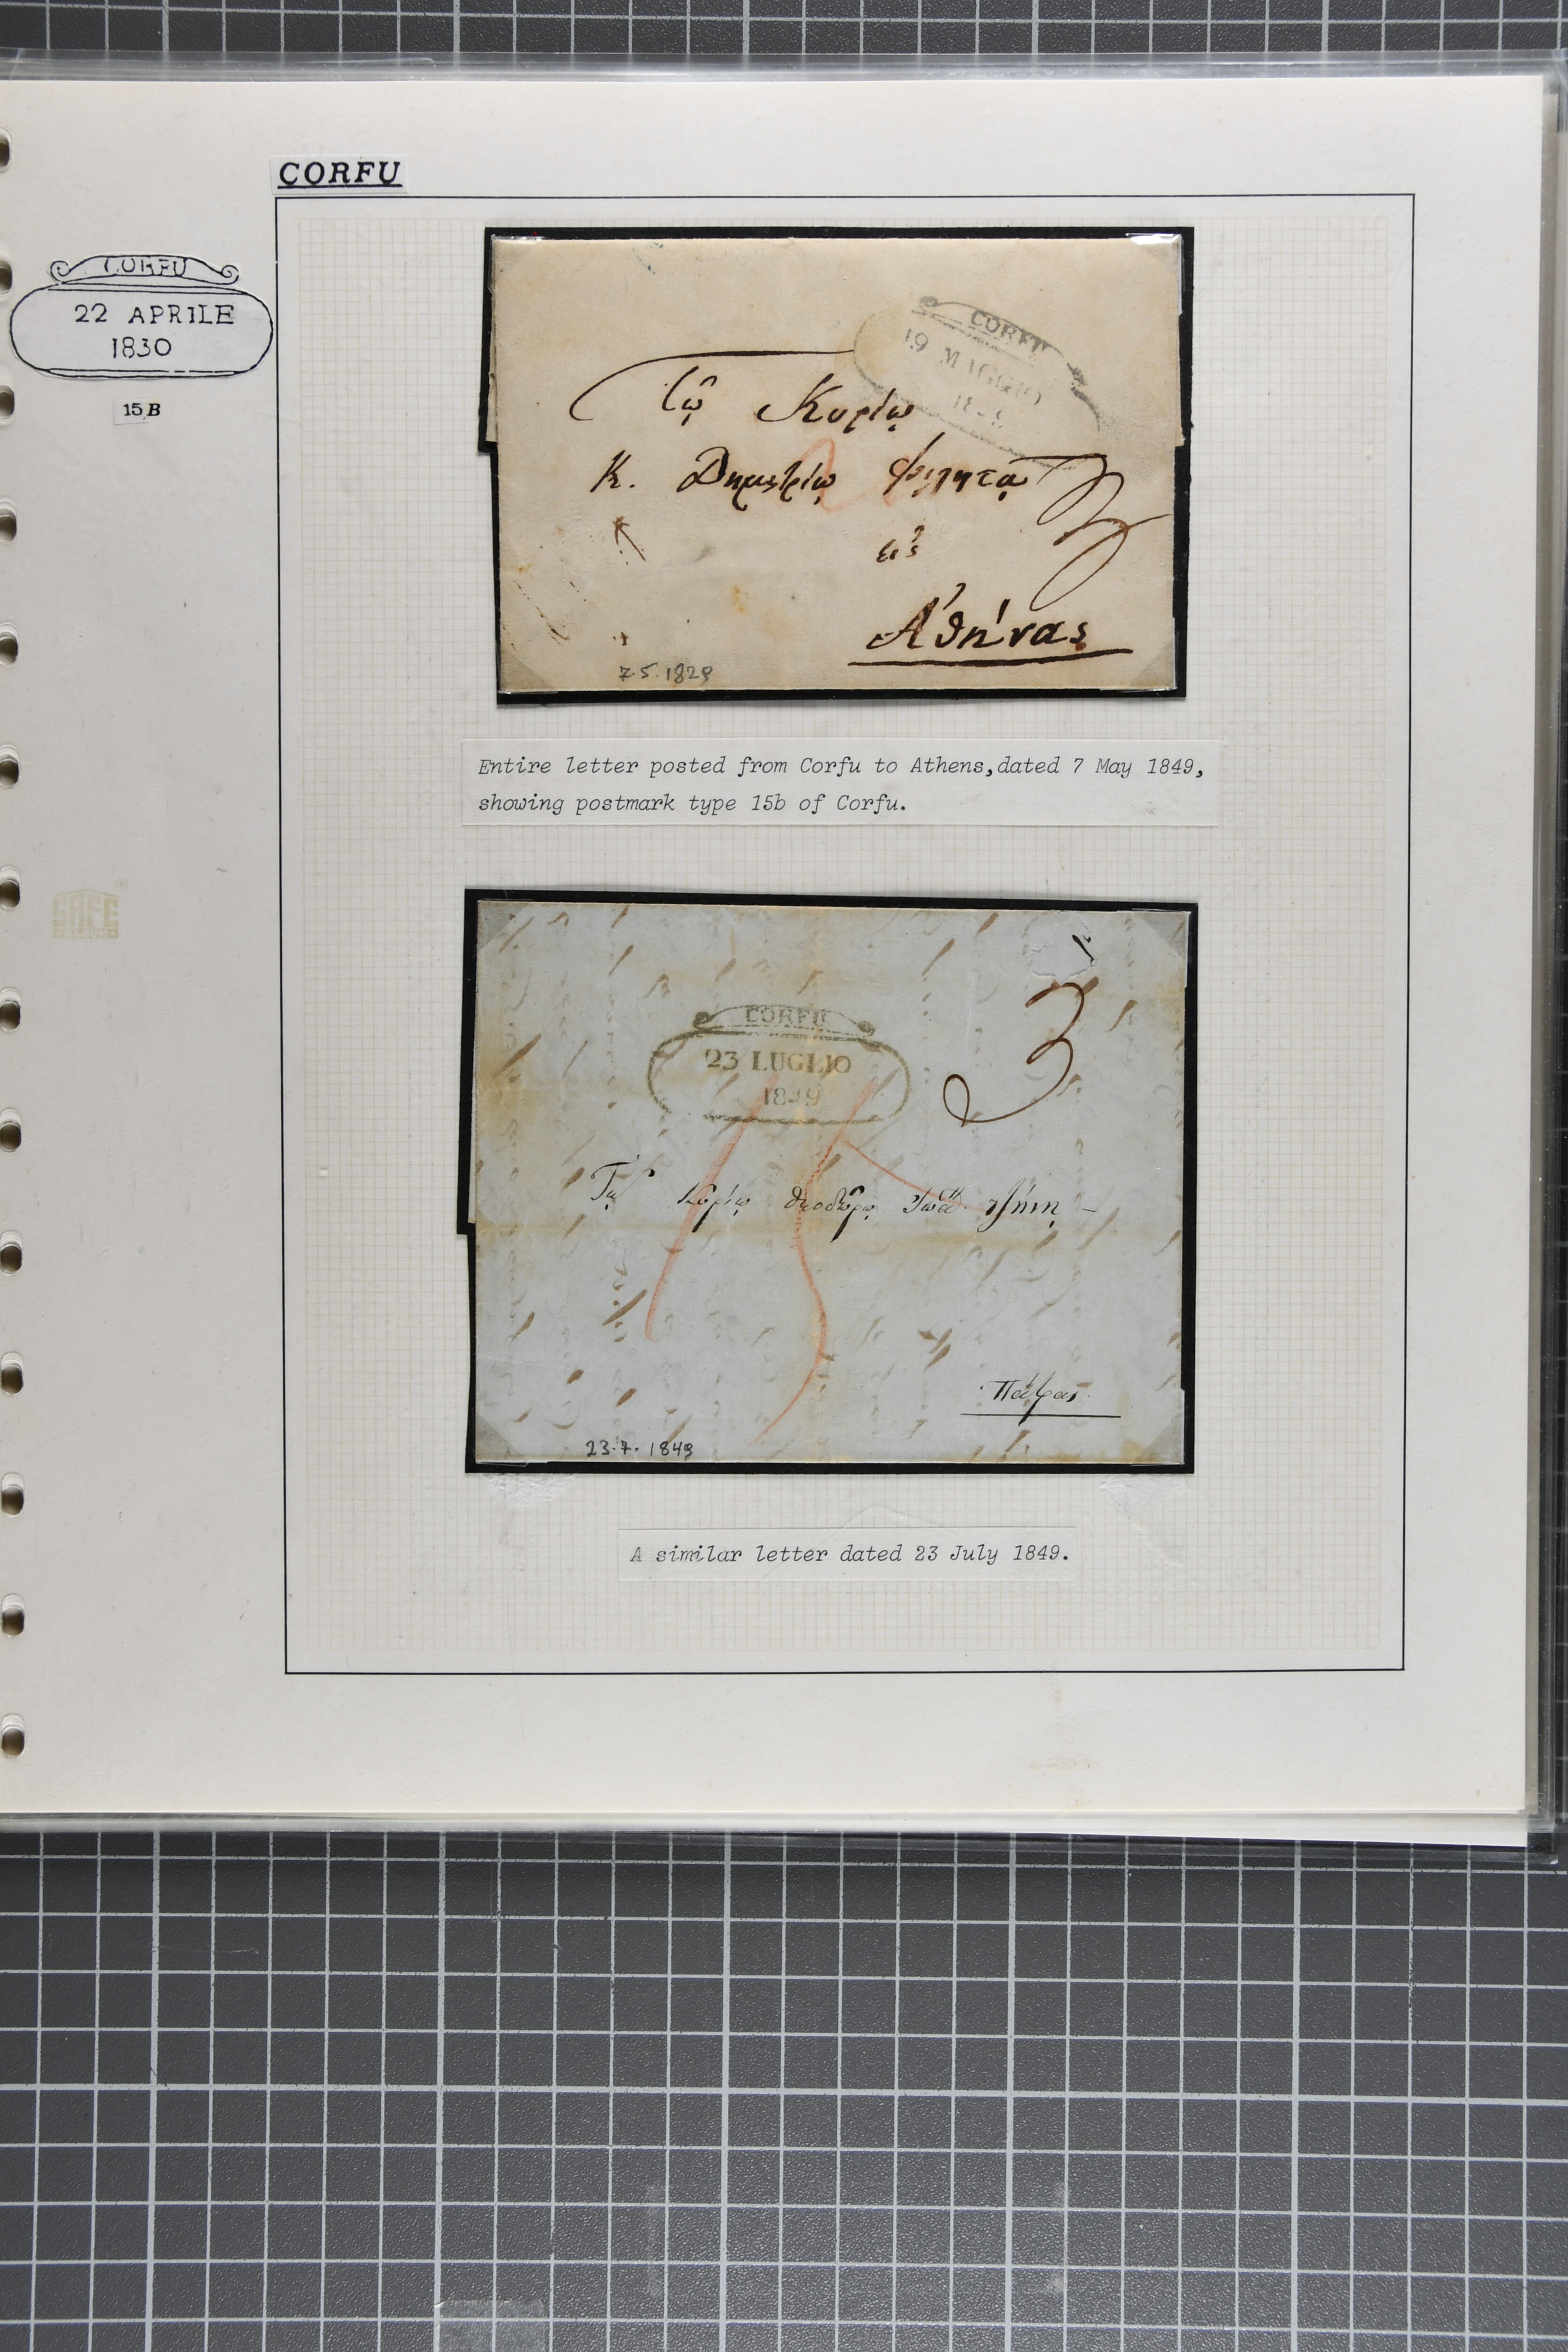 CORFU
CORFU
22 APRILE
1830
15B
CORFU
19 MAGGIO
Τῷ Κυρίῳ
Κ. Δημητρίῳ
εἰς
Ἀθήνας
7.5.1829
Entire letter posted from Corfu to Athens, dated 7 May 1849,
showing postmark type 15b of Corfu.
SAFE
CORFU
3
23 LUGLIO
1849
Τῷ Κυρίῳ Θεοδώρῳ
Πάτρας
23.7.1849
A similar letter dated 23 July 1849.